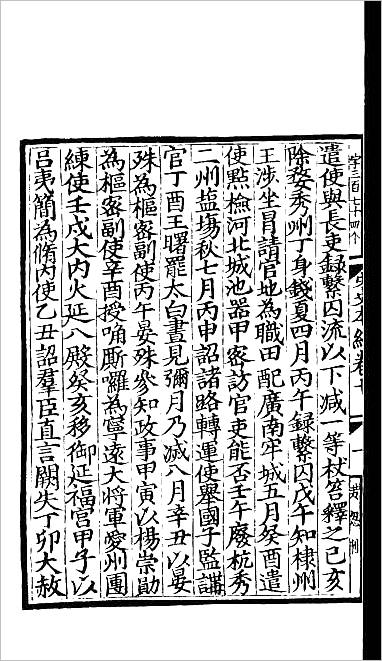 遣使與長吏録繫囚流以下減一等杖笞釋之已亥
除婺秀州丁身錢夏四月丙午録繫囚戊午知棣州
王涉坐冒請官地為職田配廣南牢城五月癸酉遣
使㸃檢河北城池器甲密訪官吏能否壬午廢杭秀
二州盐塲秋七月丙申詔諸路轉運使舉國子監講
官丁酉王曙罷太白晝見彌月乃滅八月辛丑以晏
殊為樞密副使丙午晏殊叅知政事甲寅以楊崇勛
為樞密副使辛酉授唃厮囉為寧遠大將軍愛州團
練使壬戌大内火延八殿癸亥移御延福宫甲子以
吕夷簡為脩内使乙丑詔羣臣直言闕失丁卯大赦